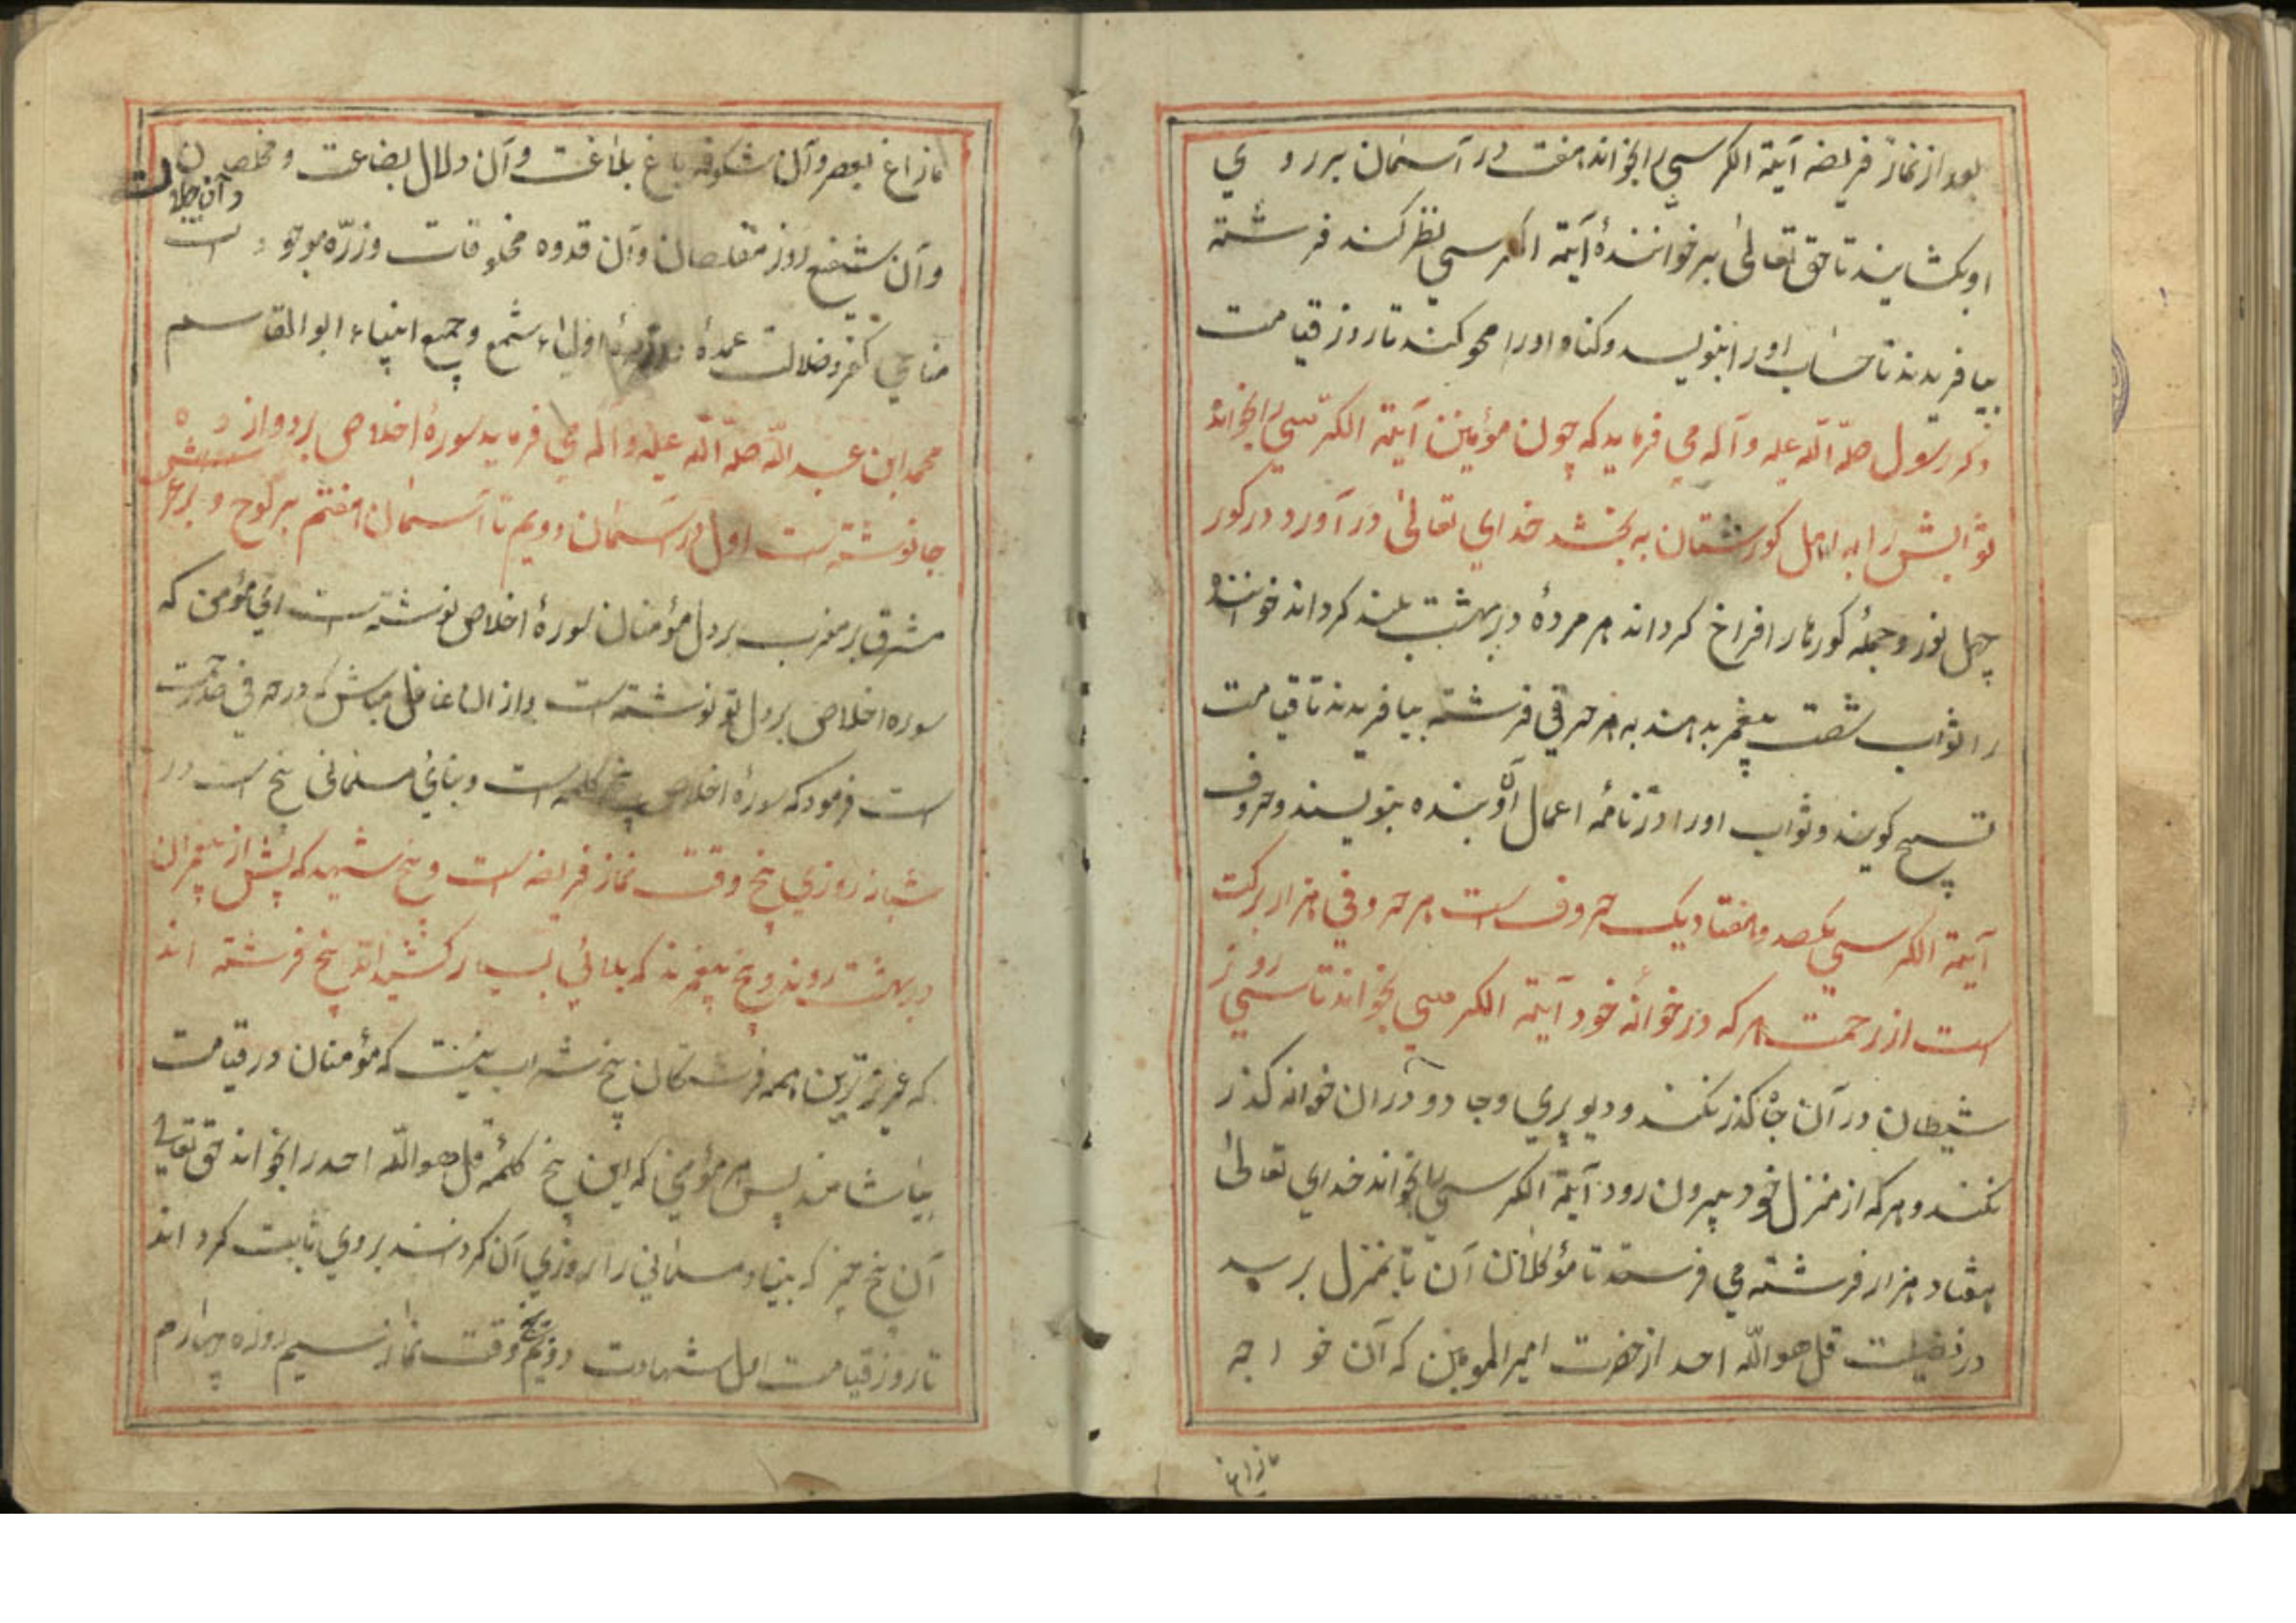 بعد از نماز فریضه آیة الکرسی را بخواند هفت در آسمان برروی
او بکشایند تا حق تعالی بر خوانندهٔ آیة الکرسی نظر کند فرشته
بیافریدند تا حساب او را بنویسد و کناه او را محو کند تا روز قیامت
دکر رسول صلّه اللّه علیه و آله می فرماید که چون مؤمنین آیة الکرسی را بخواند
ثوابش را به اهل کورستان به بخشد خدای تعالی در آورد در کور
چهل نور و جملهٔ کورها را فراخ کرداند هر مردهٔ در بهشت بلند کرداند خواننده
را ثواب شصت پیغمبر بدهند به هر حرفی فرشته بیافریدند تا قیامت
تسبیح کویند و ثواب او را در نامهٔ اعمال آن بنده بنویسند و حروف
آیة الکرسی یکصد و هفتاد یک حروف است هر حروفی هزار برکت
است از رحمت هر که در خوانهٔ خود آیة الکرسی بخواند تا سی روز
شیطان در آن جا کذر نکند و دیو پری و جادو در آن خوانه کذر
نکند و هر که از منزل خود بیرون رود آیة الکرسی را بخواند خدای تعالی
هفتاد هزار فرشته می فرستد تا مؤکلان آن تا بمنزل برسد
در فضیلت قل هو اللّه احد از حضرت امیر المومنین که آن خواجه
مازاغ
مازاغ بصر و آن شکوفه باغ بلاغت و آن دلال بضاعت و مخلصان
و آن شفیع روز مفلصان و آن قدوه مخلوقات و زرّه موجودات
کفر و ضلالت عمدهٔ اولیاء شمع و جمیع انبیاء ابو القاسم
محمد ابن عبد اللّه صلّه اللّه علیه و آله می فرماید سورهٔ اخلاص بر دوازده
جا نوشته است اول در آسمان دویم تا آسمان هفتم بر لوح و بر عرش
مشرق بر مغرب بر دل مؤمنان سورهٔ اخلاص نوشته است ای مؤمن که
سوره اخلاص بر دل تو نوشته است و از آن غافل مباش که در حرفی رحمت
است فرمود که سورهٔ اخلاص پنج کلمه است و بنای مسلمانی پنج است در
شبانه روزی پنج وقت نماز فریضه است و پنج شهید که پیش از پیغمبران
در بهشت روند و پنج پیغمبرند که بلائی بسیار کشیدند پنج فرشته اند
که عزیزترین همه فرشتکان پنج شراب که مؤمنان در قیامت
بیاشامند پس هر مؤمنی که این پنج کلمهٔ قل هو اللّه احد را بخواند حق تعالی
آن پنج چیز که بنیاد مسلمانی را روزی آن کردانند بروی ثابت کرداند
تا روز قیامت اول شهادت دویم پنج وقت نماز سیم روزه چهارم